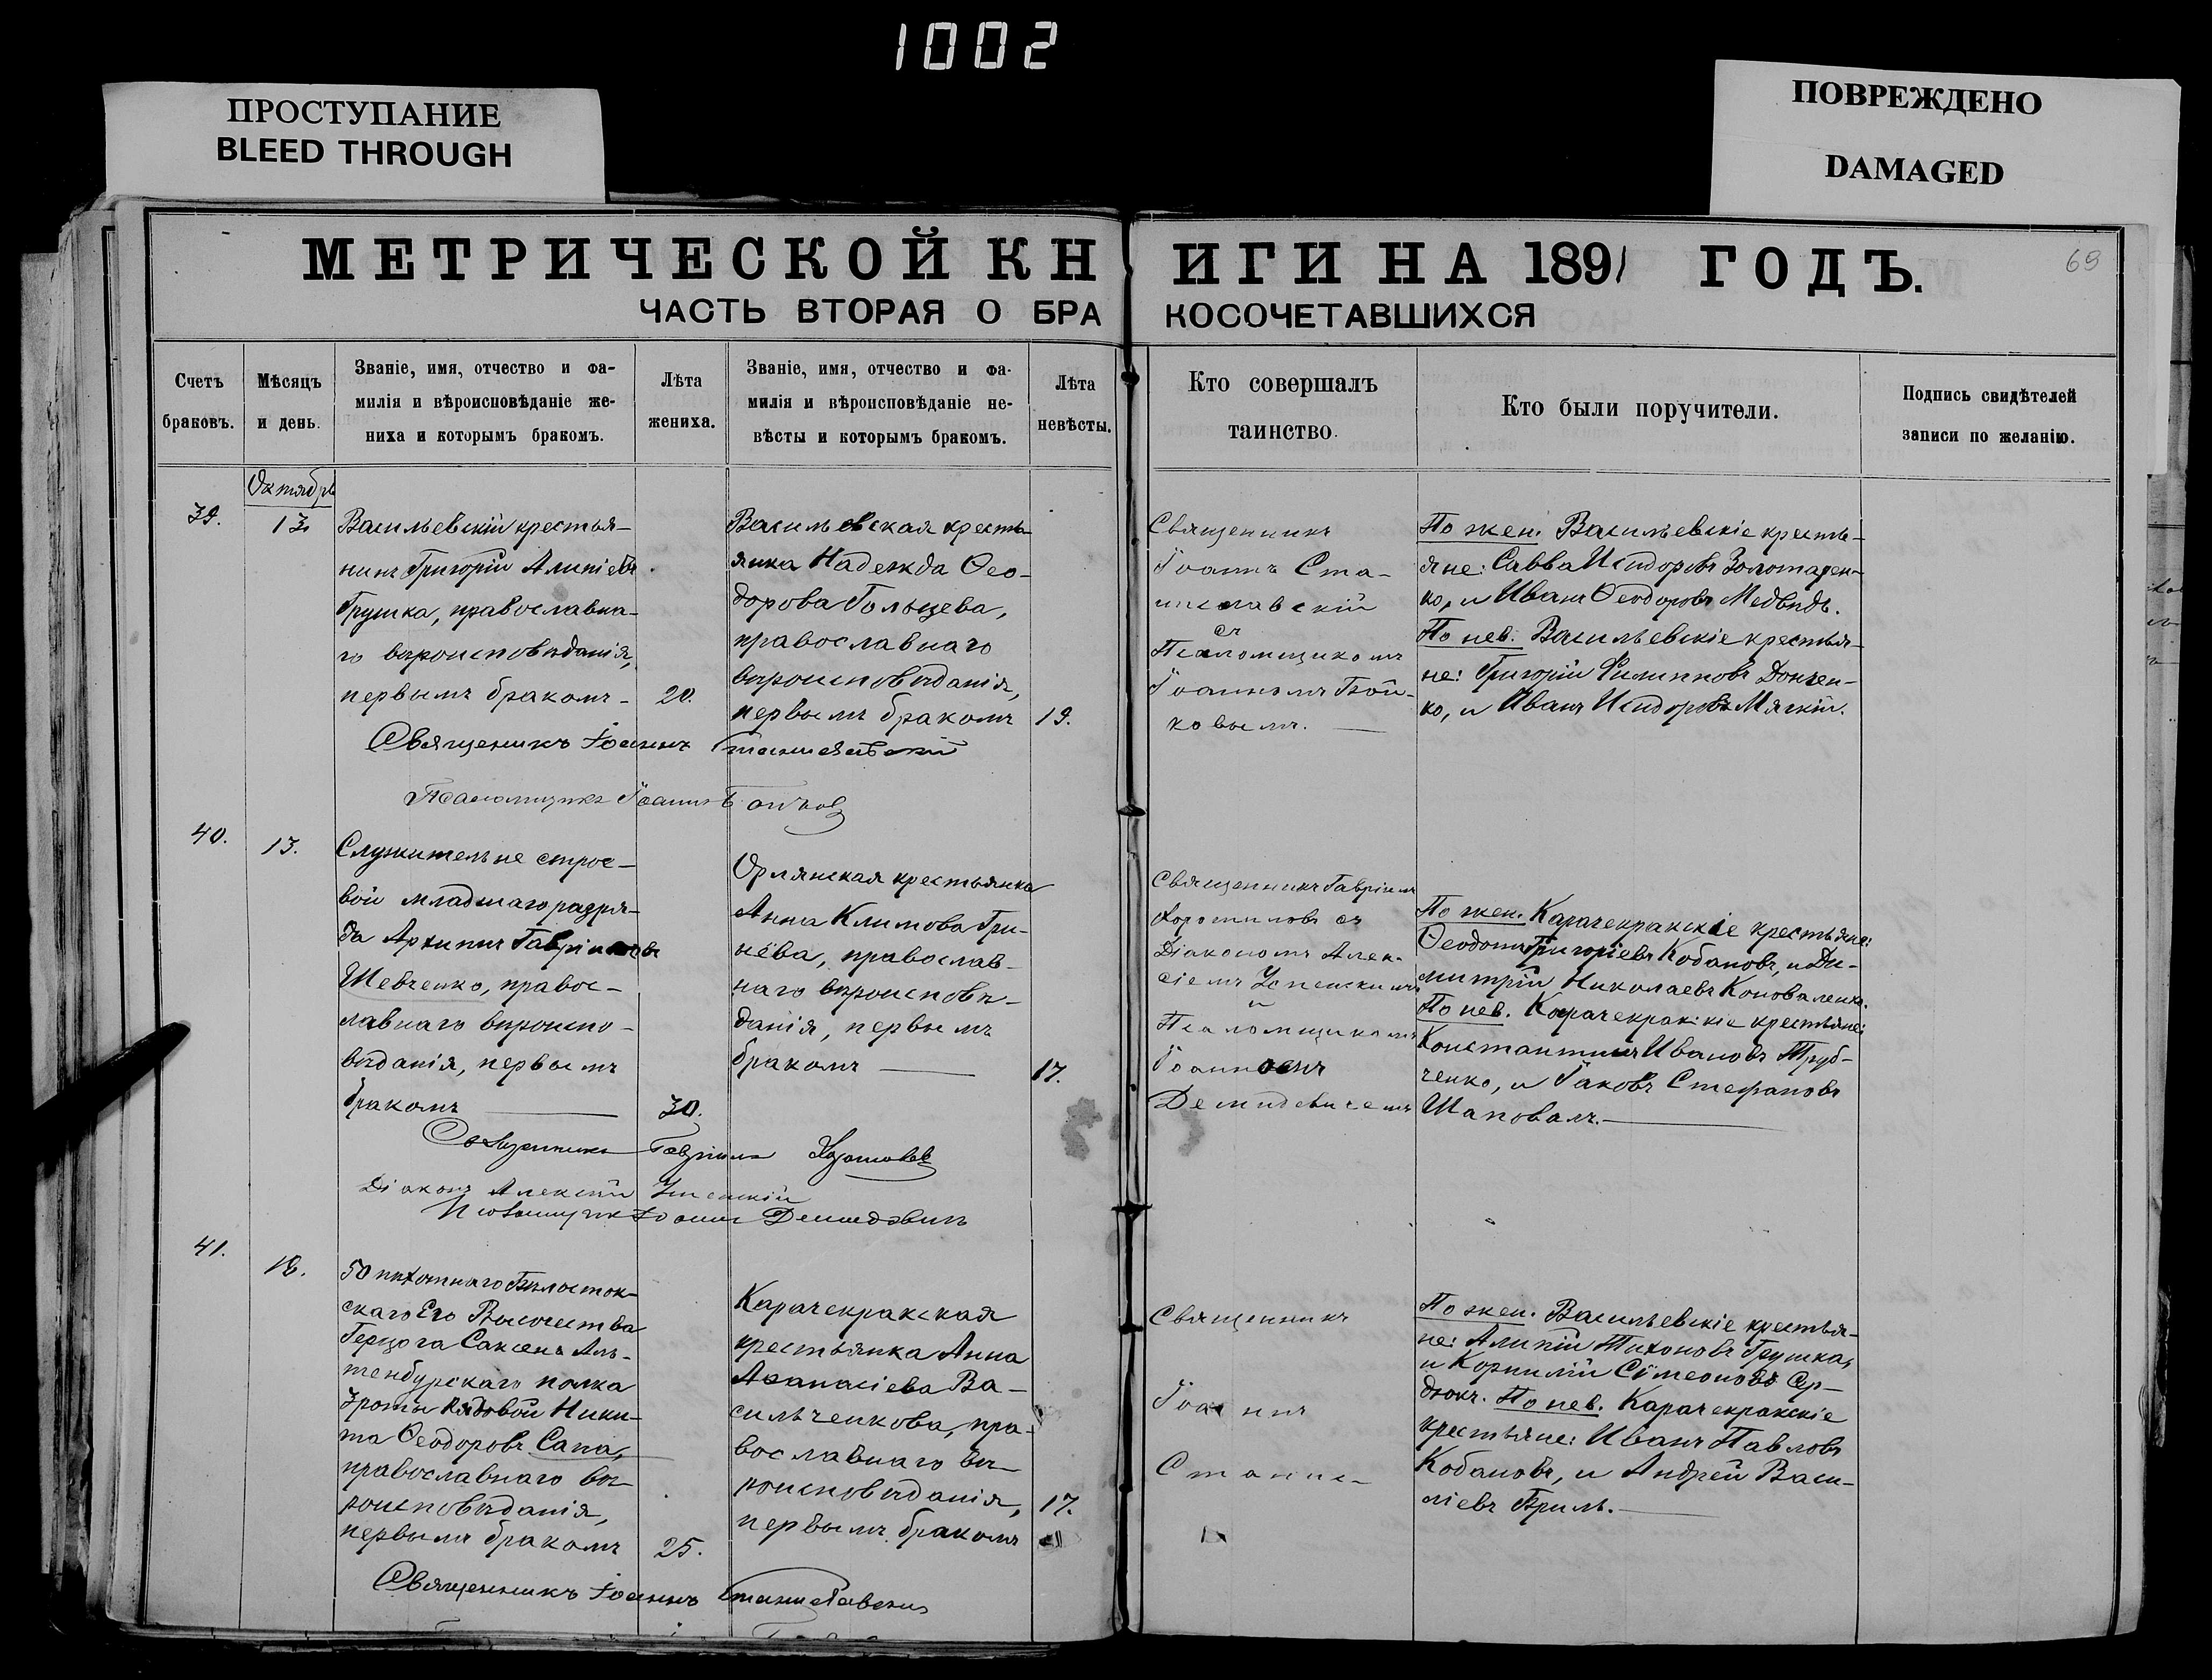 1002
ПРОСТУПАНИЕ
BLEED THROUGH
ПОВРЕЖДЕНО
DAMAGED
69
МЕТРИЧЕСКОЙ КНИГИ НА 1891 ГОДЪ.
ЧАСТЬ ВТОРАЯ О БРАКОСОЧЕТАВШИХСЯ
Счетъ
браковъ.
Мѣсяцъ
и день.
Званіе, имя, отчество и фа-
милія и вѣроисповѣданіе же-
ниха и которымъ бракомъ.
Лѣта
жениха.
Званіе, имя, отчество и фа-
милія и вѣроисповѣданіе не-
вѣсты и которымъ бракомъ.
Лѣта
невѣсты.
Кто совершалъ
таинство.
Кто были поручители.
Подпись свидѣтелей
записи по желанію.
Октябрь
39.
13.
Васильевскій крестья-
нинъ Григорій Алипіевъ
Грушка, православна-
го вѣроисповѣданія,
первымъ бракомъ -
20.
Васильевская кресть-
янка Надежда Ѳео-
дорова Гольцева,
православнаго
вѣроисповѣданія,
первымъ бракомъ
19.
Священникъ
Іоаннъ Ста-
ниславскій
съ
Псаломщикомъ
Іоанномъ Бой-
ковымъ.
По жен. Васильевскіе кресть-
яне: Савва Исидоровъ Золотарен-
ко, и Иванъ Ѳеодоровъ Медвѣдь.
По нев. Васильевскіе крестья-
не: Григорій Филипповъ Дончен-
ко, и Иванъ Исидоровъ Мягкій.
Священникъ Іоаннъ Станиславскій
Псаломщикъ Іоаннъ Бойков
40.
13.
Служитель не строе-
вой младшаго разря-
да Архипъ Гавріиловъ
Шевченко, правос-
лавнаго вѣроиспо-
вѣданія, первымъ
бракомъ
30.
Орлянская крестьянка
Анна Климова Гри-
нёва, православ-
наго вѣроисповѣ-
данія, первымъ
бракомъ
17.
Священникъ Гавріилъ
Хорошиловъ съ
Діакономъ Алек-
сіемъ Успенскимъ
и
Псаломщикомъ
Іоанномъ
Демидовичемъ
По жен. Карачекракскіе крестьяне:
Ѳеодотъ Григоріевъ Кобановъ, и Ди-
митрій Николаевъ Коноваленко.
По нев. Карачекракскіе крестьяне:
Константинъ Ивановъ Труб-
ченко, и Іаковъ Стефановъ
Шаповалъ.
Священникъ Гавріилъ
Діаконъ Алексій Успенскій
Псаломщикъ Іоаннъ Демидовичъ
41.
18.
50 пѣхотнаго Бѣлосток-
скаго Его Высочества
Герцога Саксенъ Аль-
тенбургскаго полка
3 роты Рядовой Ники-
та Ѳеодоровъ Сапа,
православнаго вѣ-
роисповѣданія,
первымъ бракомъ
25.
Карачекракская
крестьянка Анна
Аѳанасіева Ва-
сильченкова, пра-
вославнаго вѣ-
роисповѣданія,
первымъ бракомъ
17.
Священникъ
Іоаннъ
Станис-
По жен. Васильевскіе крестья-
не: Алипій Тихоновъ Грушка,
и Корнилій Сѵмеоновъ Сер-
дюкъ. По нев. Карачекракскіе
крестьяне: Иванъ Павловъ
Кобановъ, и Андрей Васи-
ліевъ Бриль.
Священникъ Іоаннъ Станиславскій